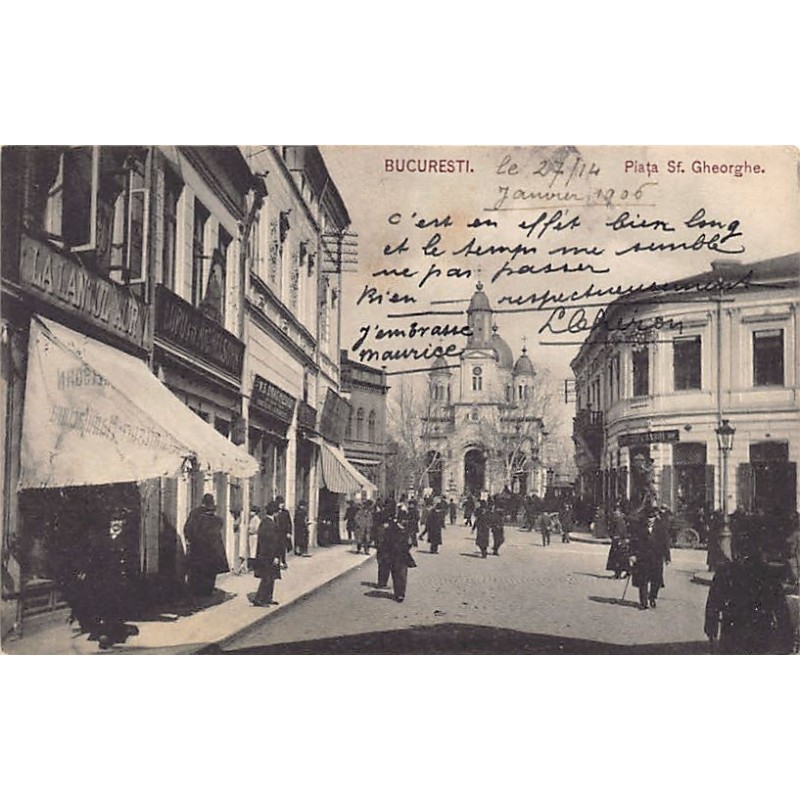 BUCURESTI. le 27/14 Piața Sf. Gheorghe.
Janvier 1906
c'est en effet bien long
et le temps me semble
ne pas passer
Bien respectueusement
J'embrasse L Chiron
maurice